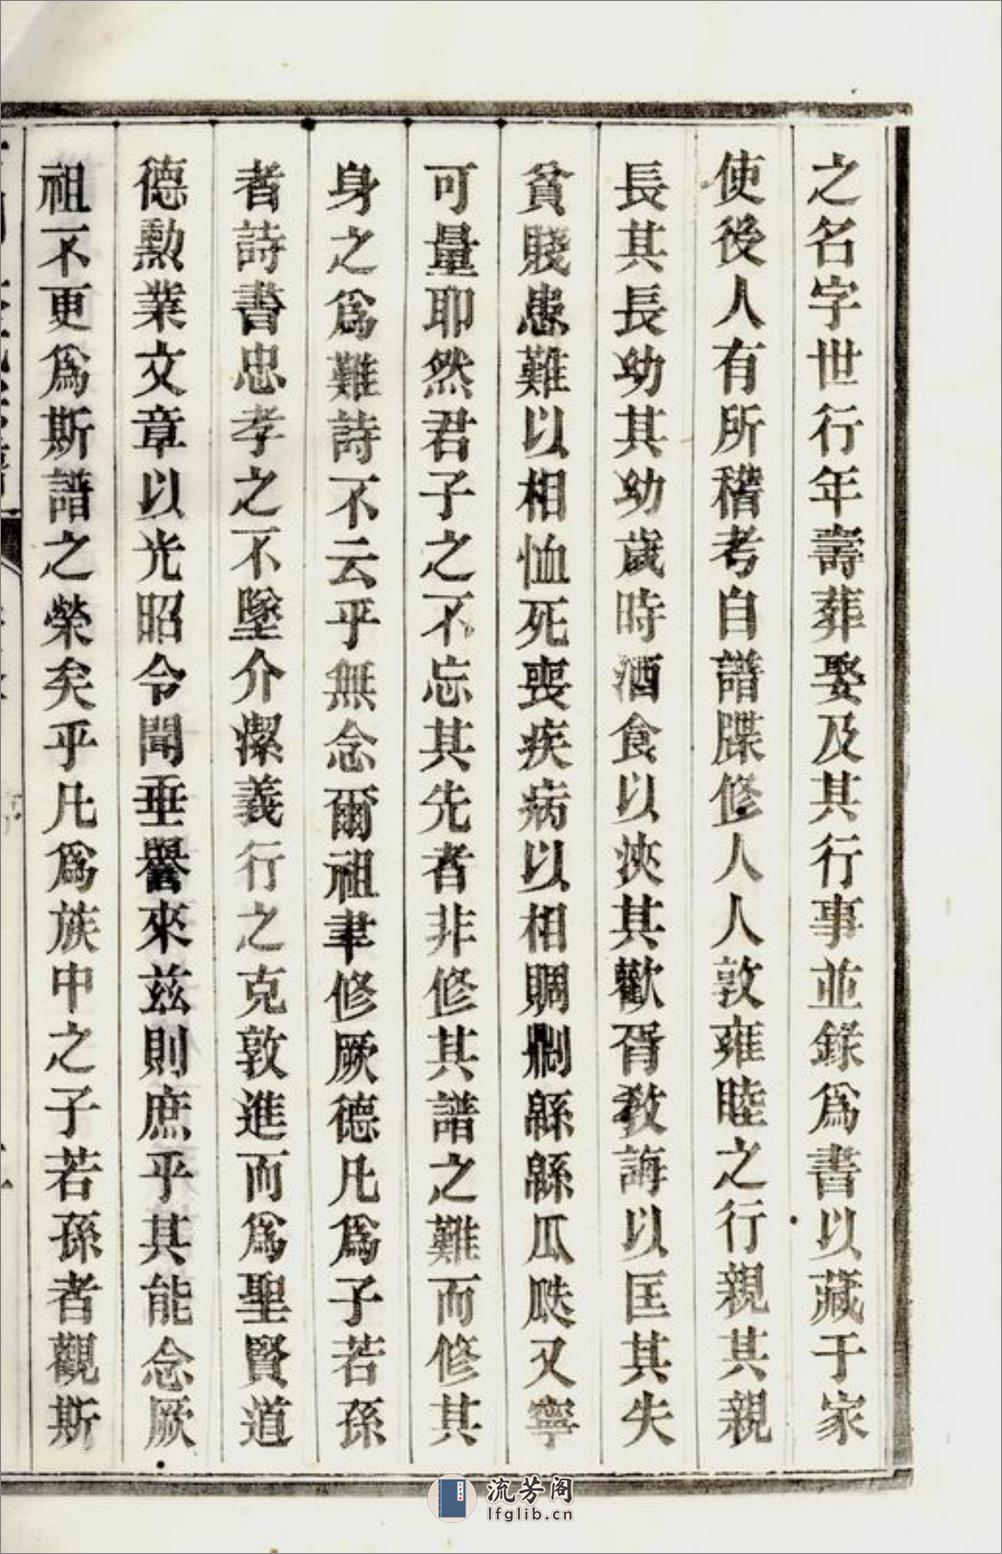 之名字世行年壽葬娶及其行事並錄爲書以藏于家
使後人有所稽考自譜牒修人人敦雍睦之行親其親
長其長幼其幼歲時酒食以浹其歡胥教誨以匡其失
貧賤患難以相恤死喪疾病以相賙則緜緜瓜瓞又寧
可量耶然君子之不忘其先者非修其譜之難而修其
身之爲難詩不云乎無念爾祖聿修厥德凡爲子若孫
者詩書忠孝之不墜介潔義行之克敦進而爲聖賢道
德勲業文章以光昭令聞垂譽來茲則庶乎其能念厥
祖不更爲斯譜之榮矣乎凡爲族中之子若孫者觀斯
流芳阁
lfglib.cn